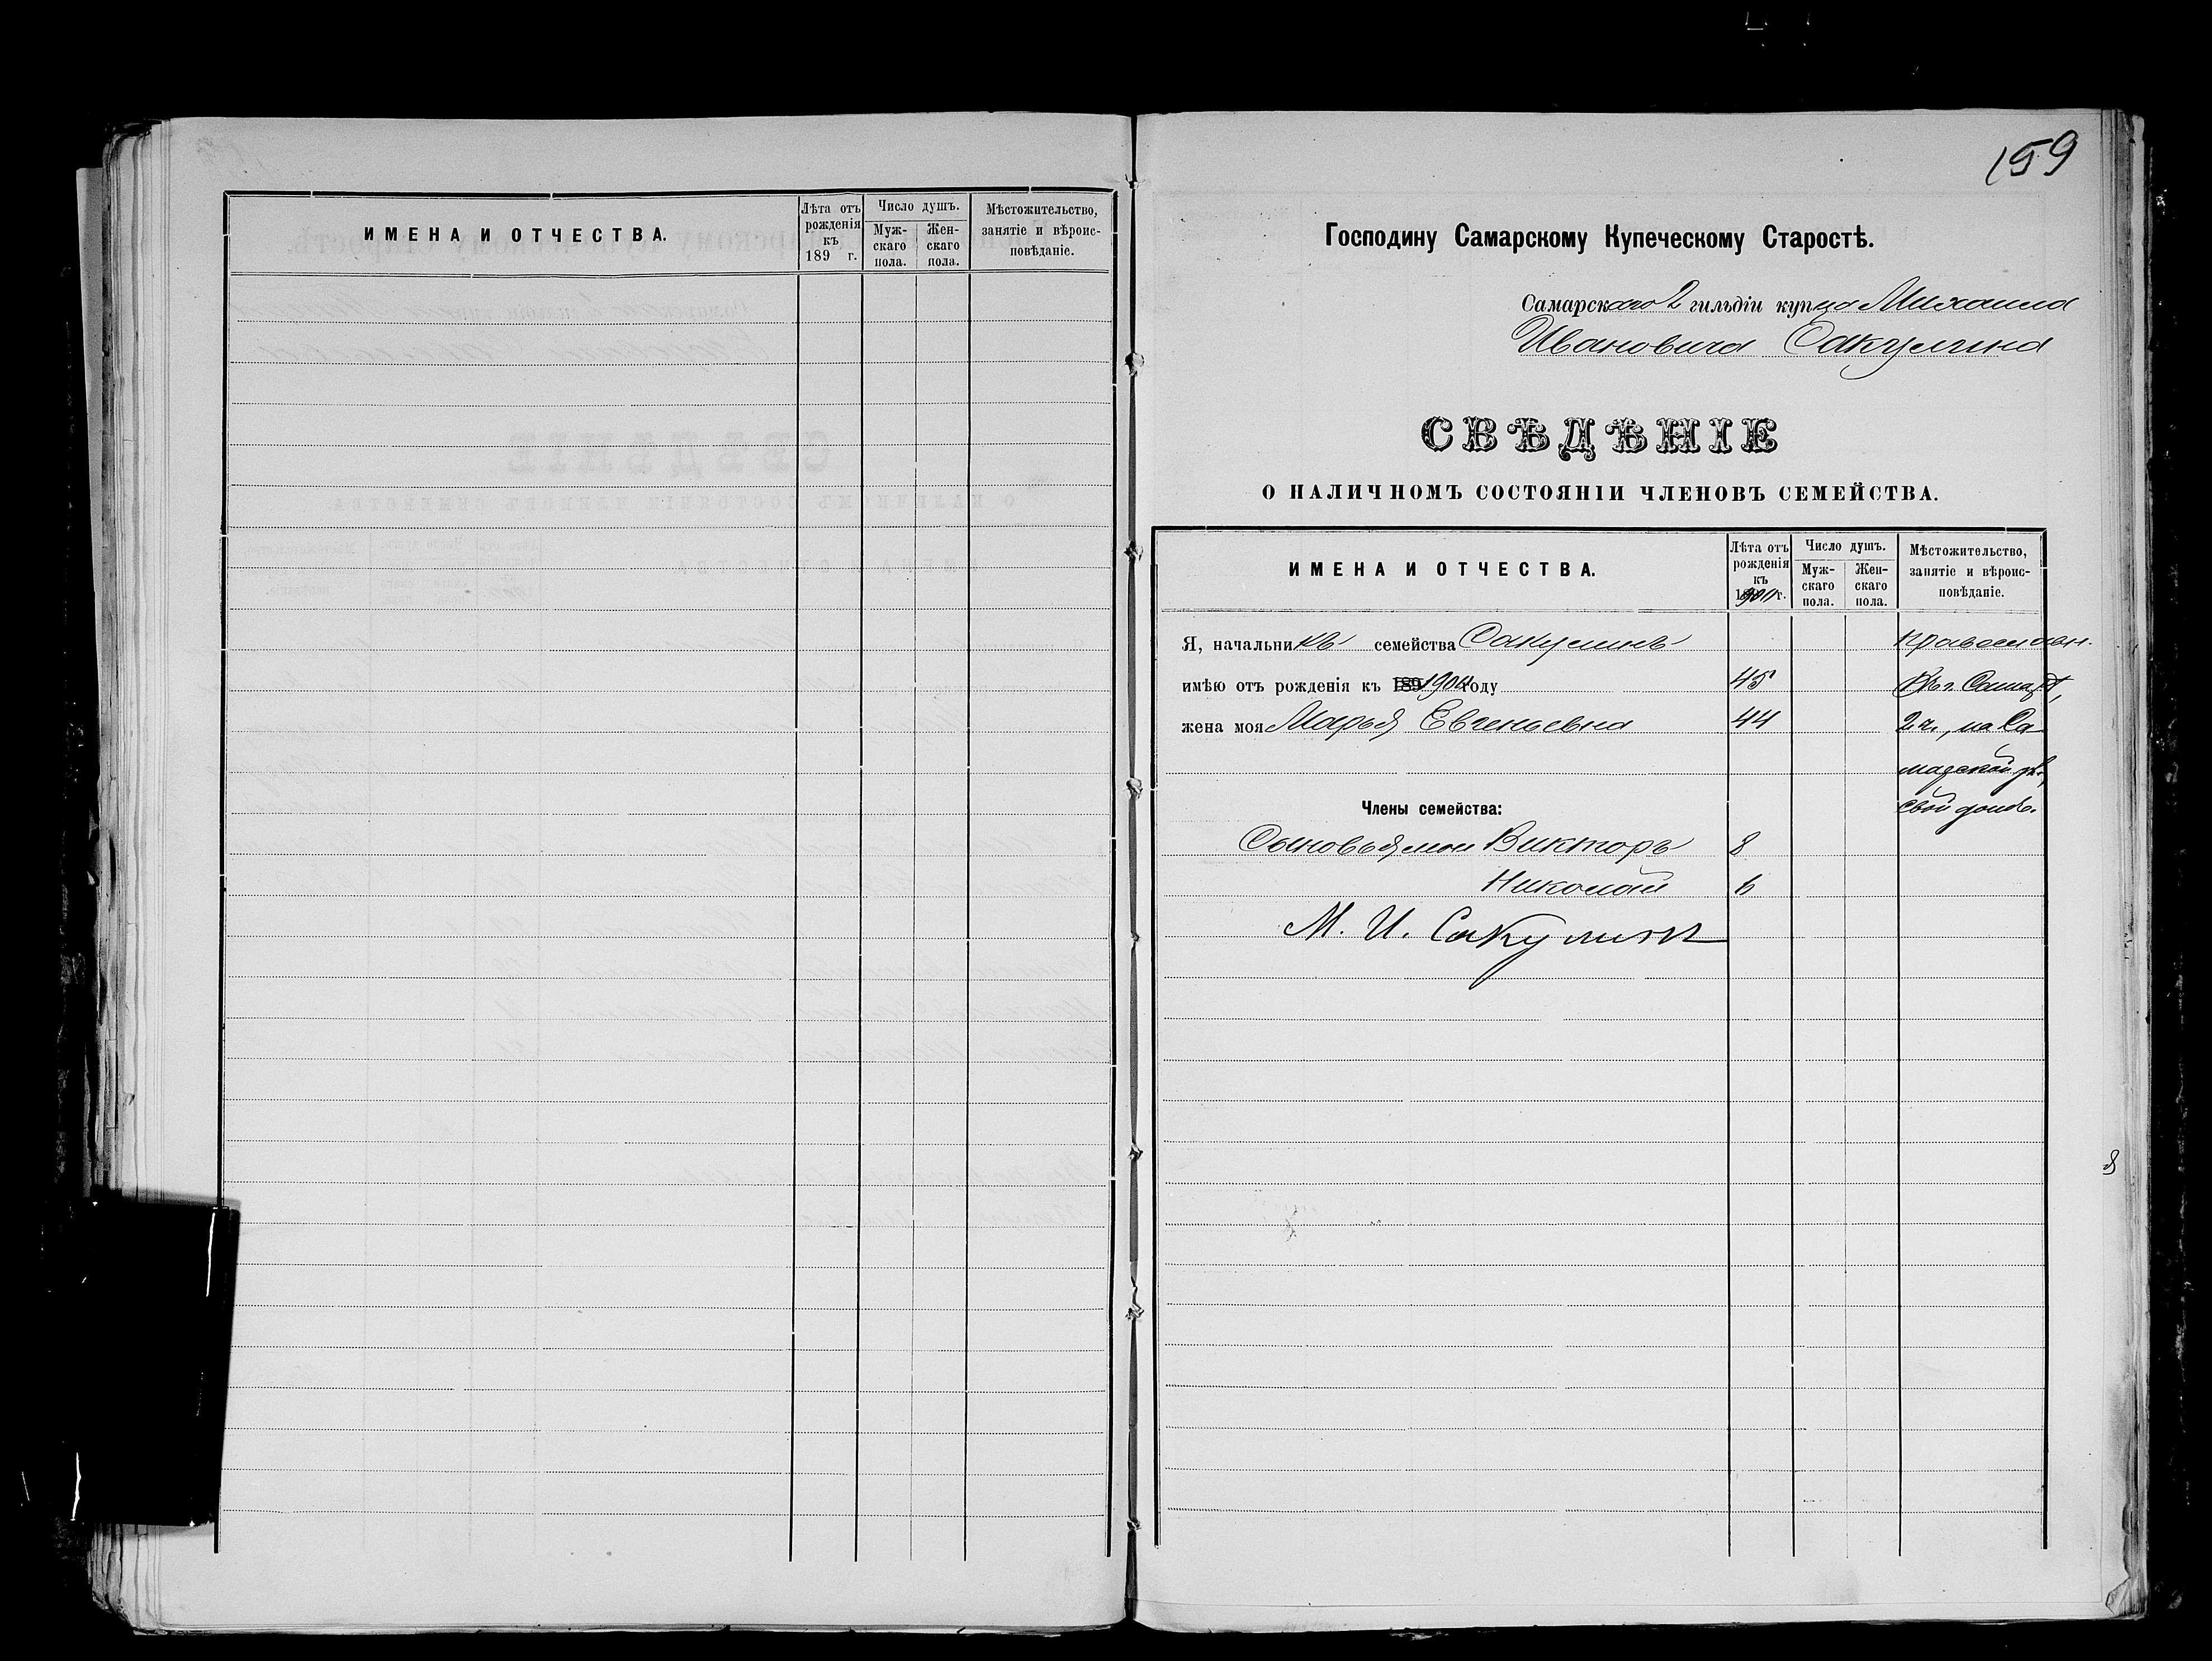 ИМЕНА И ОТЧЕСТВА.
Лѣта отъ рожденія къ 189 г.
Число душъ.
Мужскаго пола.
Женскаго пола.
Мѣстожительство, занятіе и вѣроисповѣданіе.
159
Господину Самарскому Купеческому Старостѣ.
Самарскаго 2 гильдіи купца Михаила
Ивановича Сакулина
СВѢДѢНІЕ
О НАЛИЧНОМЪ СОСТОЯНІИ ЧЛЕНОВЪ СЕМЕЙСТВА.
ИМЕНА И ОТЧЕСТВА.
Лѣта отъ рожденія къ г.
Число душъ.
Мужскаго пола.
Женскаго пола.
Мѣстожительство, занятіе и вѣроисповѣданіе.
Я, начальникъ семейства Сакулинъ православн.
имѣю отъ рожденія къ году 45 г. Самарѣ,
жена моя Марья Евгеньевна 44 2 ч., на Са
марской ул.,
Члены семейства: свой домъ.
Сыновья мои Викторъ 8
Николай 6
М. И. Сакулинъ